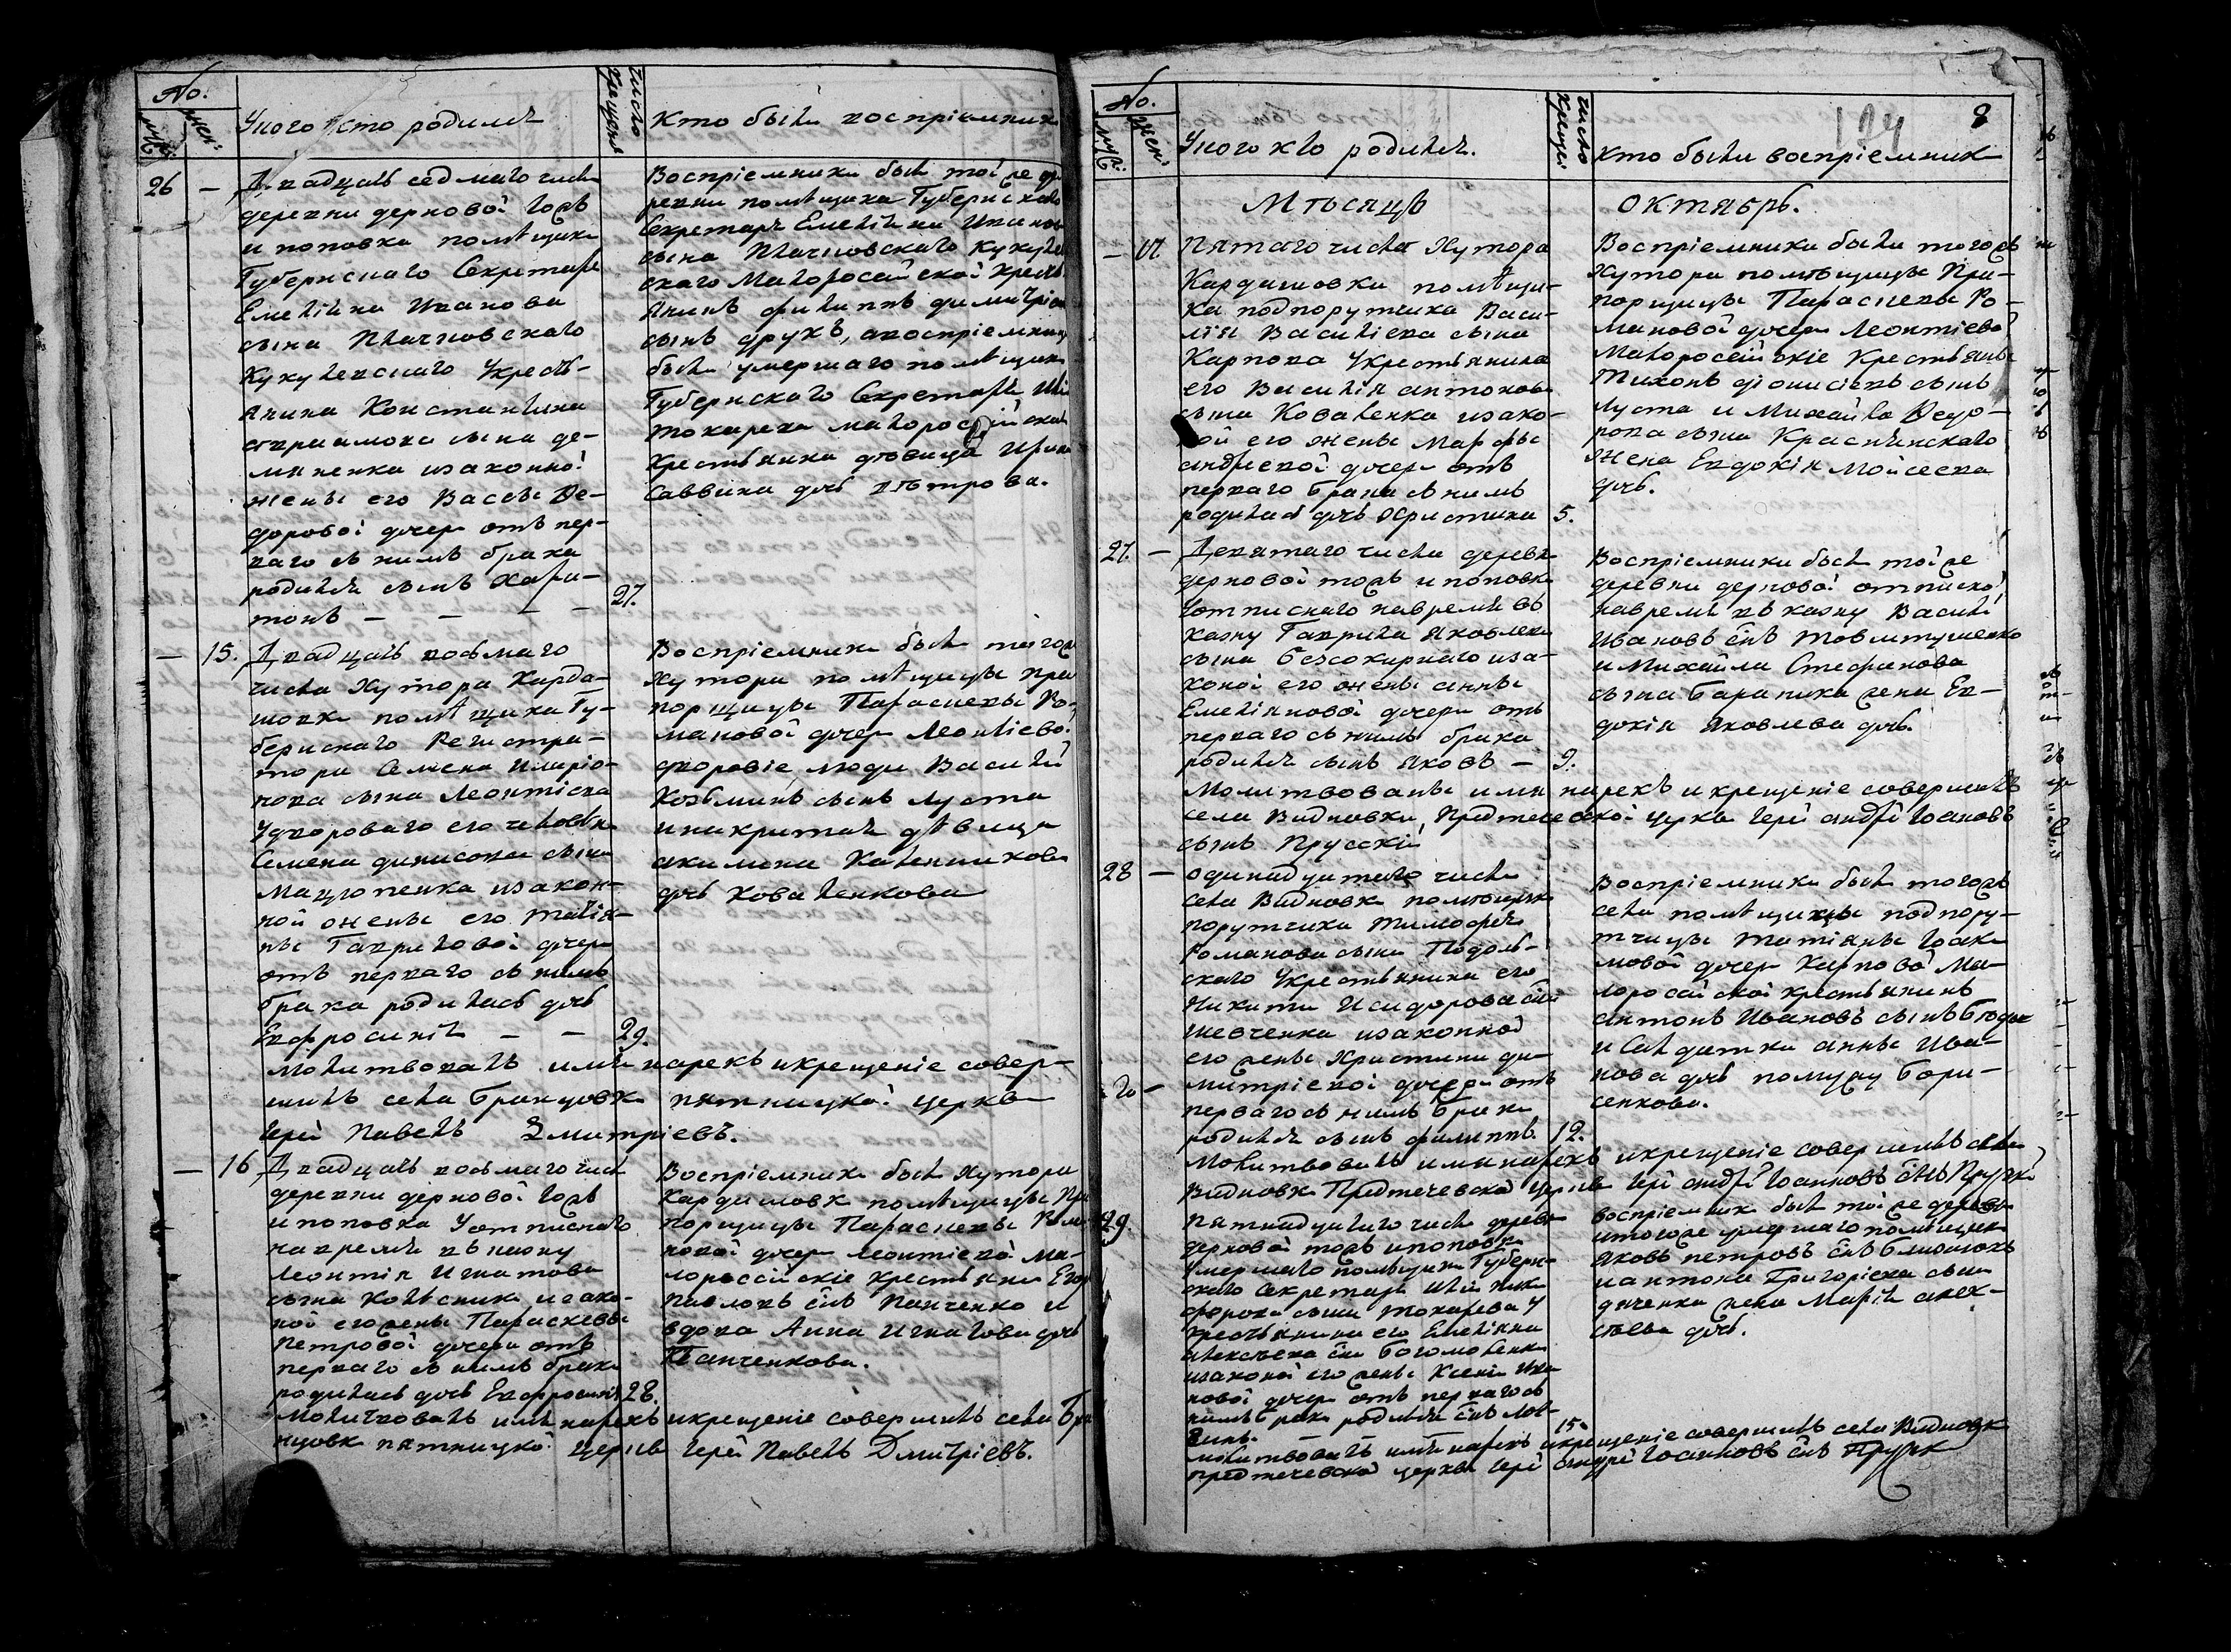 No.
муж:
жен:
У кого кто родился
число крещенія
Кто были воспріемники
26 —
Двадцать седмаго числа
деревни дерновой тожъ
и поповка помѣщика
Губернскаго Секретаря
Емеліяна Иванова
сына
у кресть-
янина Константина
сына де-
мяненка изаконной
жены его Вассы Ѳе-
доровой дочери отъ пер-
ваго съ нимъ брака
родился сынъ Хари-
тонъ — — — 27.
Воспріемники были той же де
ревни помѣщика Губернскаго
Секретаря Емеліяна Иванова
сына
Малоросейской кресть
янинъ Филиппъ Димитріевъ
сынъ друхъ, а воспріемница
была умершаго помѣщика
Губернскаго Секретаря Иліи
Токарева малоросійскаго
крестьянина вдовица Ирина
Саввина дочь Петрова.
— 15.
Двадцать восьмаго
числа Хутора Карда-
шовки помѣщика Гу-
бернскаго Регистра-
тора Семена Иларіо-
нова сына Леонтіева
У двороваго его человѣка
Семена Динисова сына
изакон-
ной жены его Татія-
ны Гавриловой дочери
отъ перваго съ нимъ
брака родилась дочь
Евфросинія — — 29.
Воспріемники были того же
Хутора помѣщицы пра
порщицы Параскевы Ро-
мановой дочери Леонтіевой
дворовіе люди Василій
Козьминъ сынъ Луста
дѣвица
акилина
дочь Коваленкова
Молитвовалъ имя нарекъ и крещеніе совер-
шилъ села Бранцовки пятницкой церкви
Іерей Павелъ Дмитріевъ.
— 16
Двадцать восьмаго числа
деревни дерновой тожъ
и поповка У отписнаго
на время въ казну
Леонтія Игнатова
сына Колѣсника изако-
ной его жены Параскевы
Петровой дочери отъ
перваго съ нимъ брака
родилась дочь Евфросинія 28.
Воспріемники были Хутора
Кардашовки помѣщицы Пра
порщицы Параскевы Рома
новой дочери Леонтіевой Ма-
лороссійскіе крестьяни Егор
Павловъ сынъ Панченко и
вдова Анна Игнатова дочь
Панченкова.
Молитвовалъ имя нарекъ и крещеніе совершилъ села Бра
нцовки пятницкой церкви Іерей Павелъ Дмитріевъ.
No.
муж:
жен:
У кого кто родился.
число крещен:
124
8
Кто были воспріемники
Мѣсяцъ Октябрь.
— 17.
Пятаго числа Хутора
Кардашовки помѣщи-
ка подпорутчика Васи-
лія Василіева сына
Карпова У крестьянина
его Василія антонова
сына Коваленка изако-
ной его жены Марфы
андреевой дочери отъ
перваго брака съ нимъ
родилась дочь Христина 5.
Воспріемники были тогожъ
хутора помѣщицы Пра-
порщицы Параскевы Ро-
мановой дочери Леонтіевой
Малоросейскіе Крестьяне
Тихонъ діонисіевъ сынъ
Луста и Михайла Ѳедо-
рова сына Краснянскаго
жена Евдокія Мойсеева
дочь.
27. —
Девятаго числа деревни
дерновой тожъ и поповки
У отписнаго на время въ
казну Гаврила Яковлева
сына Безсокирнаго иза-
коной его жены анны
Емеліяновой дочери отъ
перваго съ нимъ брака
родился сынъ Яковъ — 9.
Воспріемники были той же
деревни дерновой отписной
на время въ казну Василій
Ивановъ сынъ
и Михайла Стефанова
сына Бараника жена Ев-
докія Яковлева дочь.
Молитвованы имя нарекъ и крещеніе совершилъ
села Видновки, Предтечевской церкви Іерей андрей Іоанновъ
сынъ Прускій
28 —
одинадцатаго числа
села Видновки помѣщика
порутчика Тимофея
Романова сына Подоль-
скаго У крестьянина его
Никиты Исидорова сына
Шевченка изаконной
его жены Христины ди-
митріевой дочери отъ
перваго съ нимъ брака
родился сынъ Филиппъ. 12.
Воспріемники были тогожъ
села помѣщицы подпору-
тчицы Татіяны Іоаки
мовой дочери Карповой Ма-
лоросейской крестьянинъ
антонъ Ивановъ сынъ
и Салдатка анны Ива-
нова дочь по мужу Бори-
сенкова.
20 —
Молитвовалъ имя нарекъ и крещеніе совершилъ села
Видновки Предтечевской церкви Іерей андрей Іоанновъ сынъ Прускій
29.
Пятнадцатаго числа деревни
дерновой тожъ и поповки
Умершаго помѣщика Губерн-
скаго Секретаря Иліи Ники
форова сына Токарева У
крестьянина его Емеліяна
алексѣева сына Богомоленка
изаконой его жены Ксеніи Ива
новой дочери отъ перваго съ
нимъ брака родился сынъ Лон-
гинъ. — 15.
Воспріемники были той же деревни
и тогоже умершаго помѣщика
Яковъ Петровъ сынъ
и антона Григоріева сына
дяченка жена Марія алек-
сѣева дочь.
Молитвовалъ имя нарекъ и крещеніе совершилъ села Видновки
предтечевской церкви Іерей андрей Іоанновъ сынъ Прускій